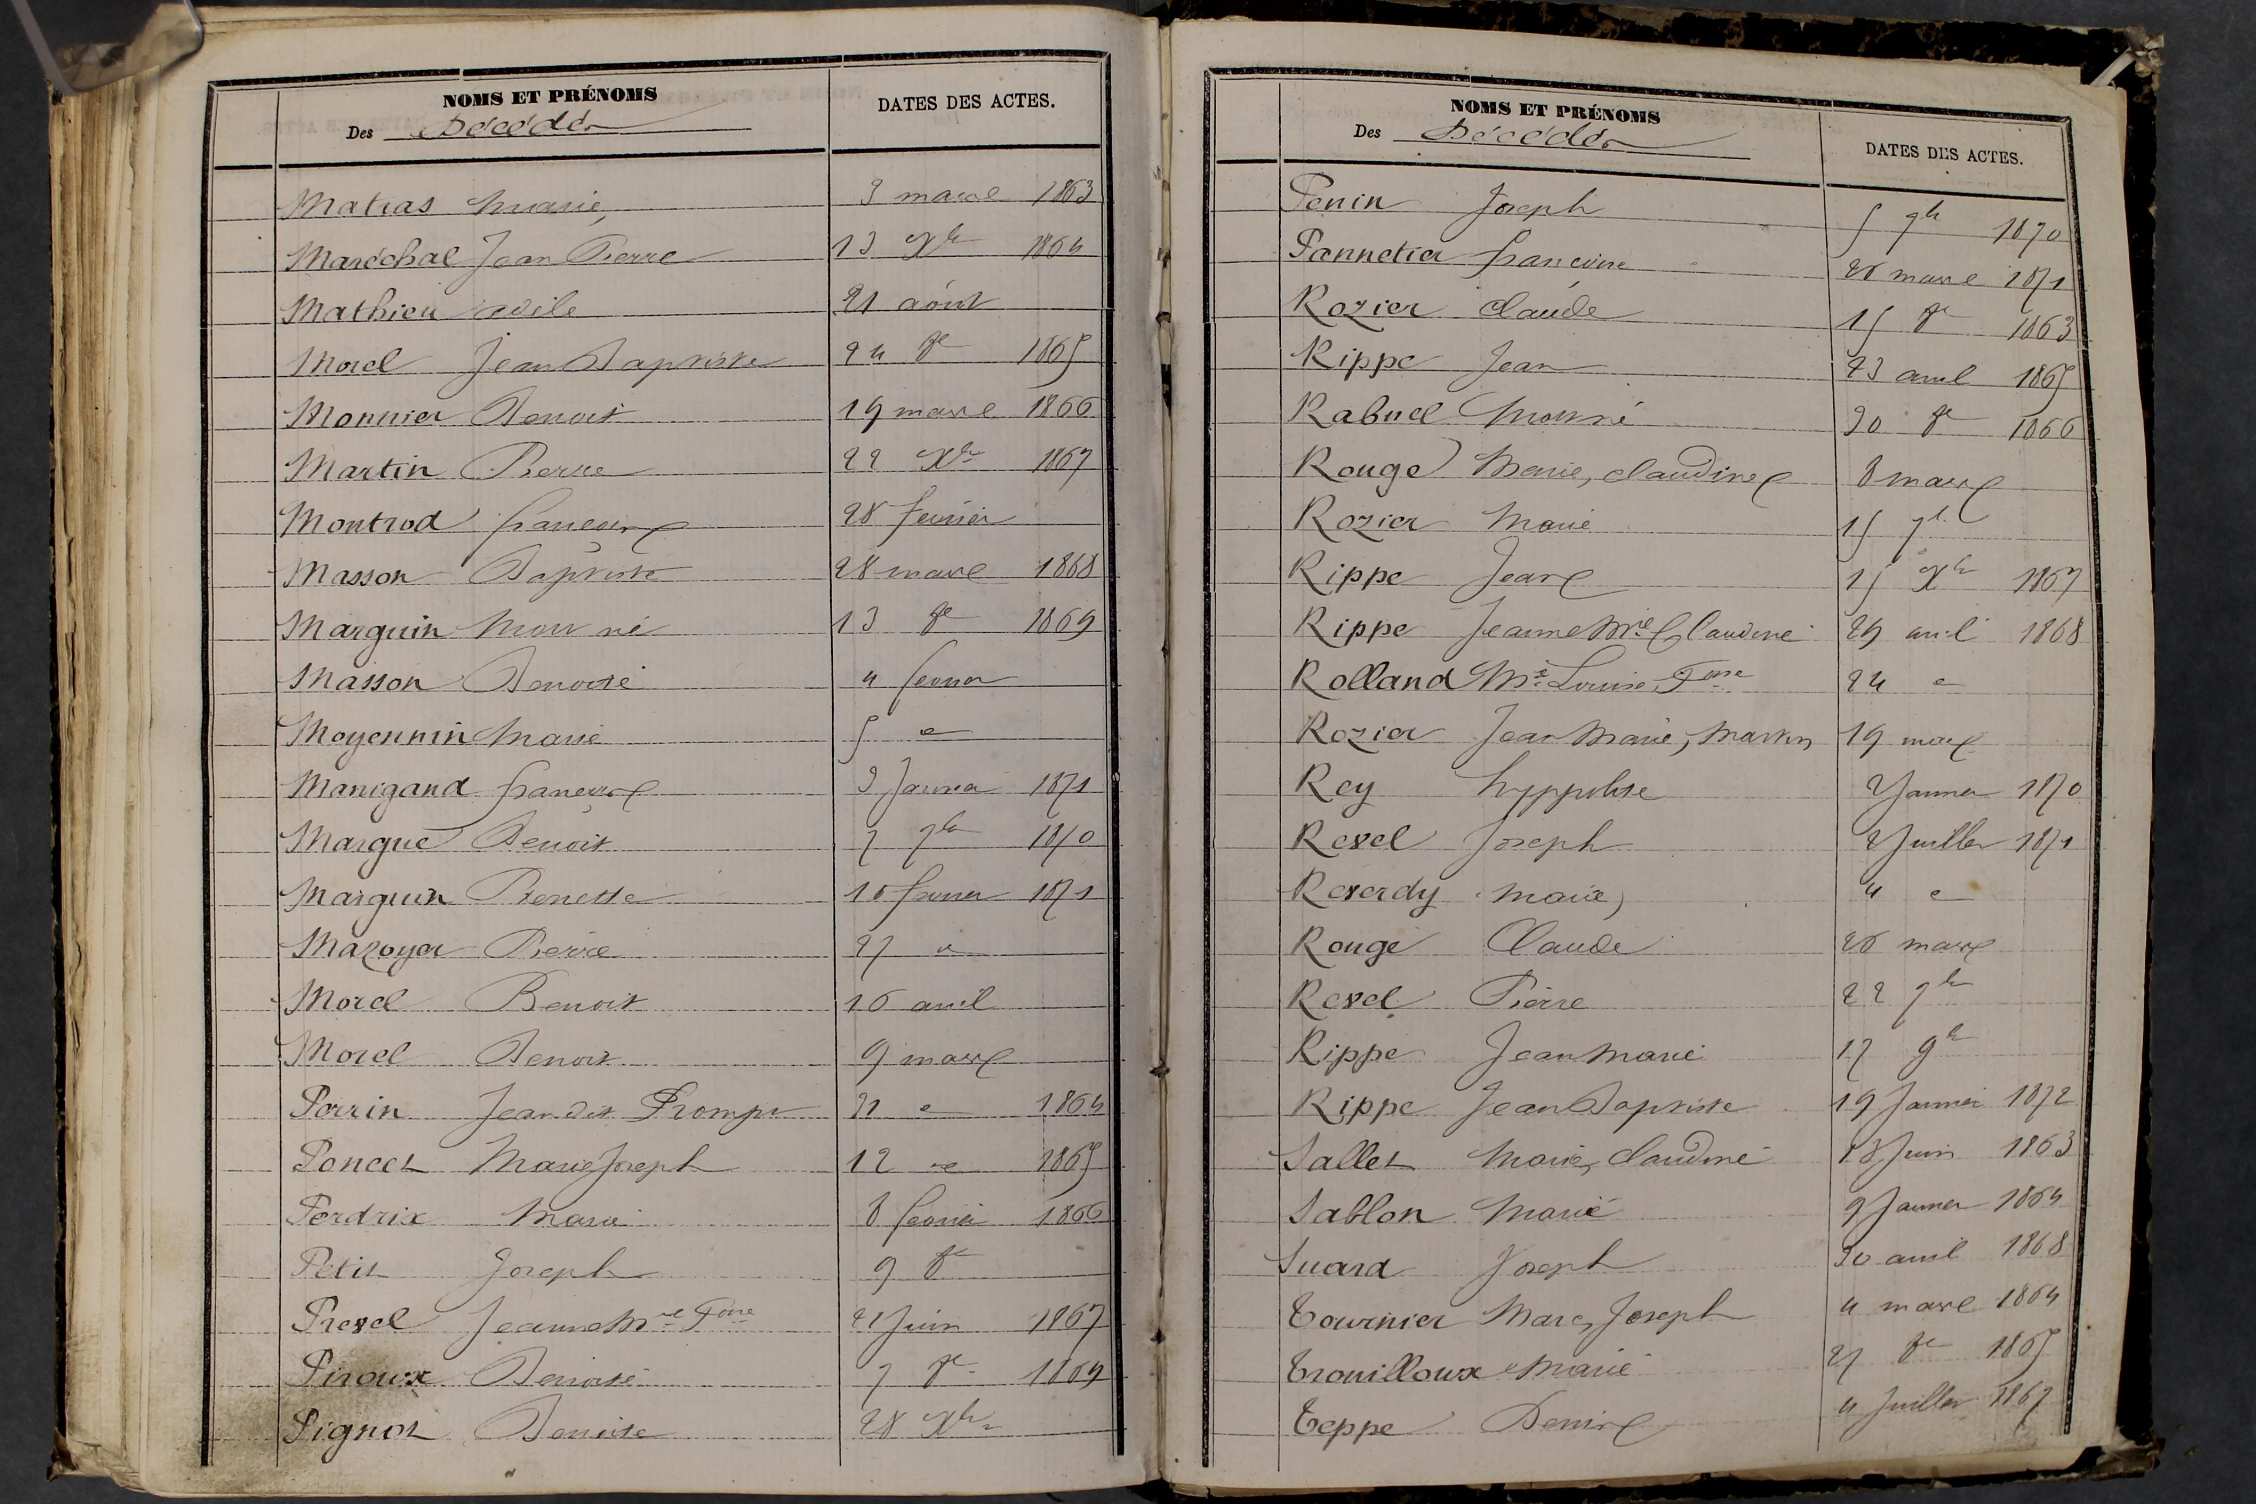 NOMS ET PRÉNOMS
Des Décédés
DATES DES ACTES.
Matras Marie, 3 mars 1863
Maréchal Jean Pierre 13 Xbre 1864
Mathieu adèle 21 aôut
Morel Jean Baptiste 24 de 1865
Monnier Benoit 19 mars 1866
Martin Pierre 22 Xbre 1867
Montrod françois 28 fevrier
Masson Baptiste 28 mars 1868
Marguin Mort né 13 de 1869
Masson Benoite 4 fevrier
Moyennin Marie 5 "
Manigand françoise 3 Janvier 1871
Margue Benoit 7 7bre 1870
Marguin Pierrette 10 fevrier 1871
Mazoyer Pierre 27 "
Morel Benoit 16 avril
Morel Benoit 9 mars
Perrin Jean dit Prompt 21 " 1864
Poncet Marie Joseph 12 " 1865
Perdrix Marie 8 fevrier 1866
Petit Joseph 9 de
Prevel Jeanne Mie Fçoise 21 Juin 1867
Piroux Benoite 7 de 1869
Pignot Benoite 28 Xbre
NOMS ET PRÉNOMS
Des Décédés
DATES DES ACTES.
Penin Joseph 5 9bre 1870
Pannetier françoise 26 mars 1871
Rozier Claude 15 de 1863
Rippe Jean 23 avril 1865
Rabuel Mort né 30 de 1866
Rouge Marie, Claudine 8 mars
Rozier Marie 15 7bre
Rippe Jean 15 Xbre 1867
Rippe Jeanne Mie Claudine 29 avril 1868
Rolland Mie Louise, Fçoise 24 "
Rozier Jean Marie, Martin 19 mars
Rey hyppolite 2 Janvier 1870
Revel Joseph 2 Juillet 1871
Reverdy Marie, 4 "
Rouge Claude 26 mars
Revel Pierre 22 7bre
Rippe Jean Marie 17 9bre
Rippe Jean Baptiste 19 Janvier 1872
Sallet Marie, Claudine 18 Juin 1863
Sablon Marie 9 Janvier 1864
Suard Joseph 30 avril 1868
Tournier Marc, Joseph 4 mars 1864
Trouilloux Marie 27 de 1865
Teppe Denise 4 Juillet 1867